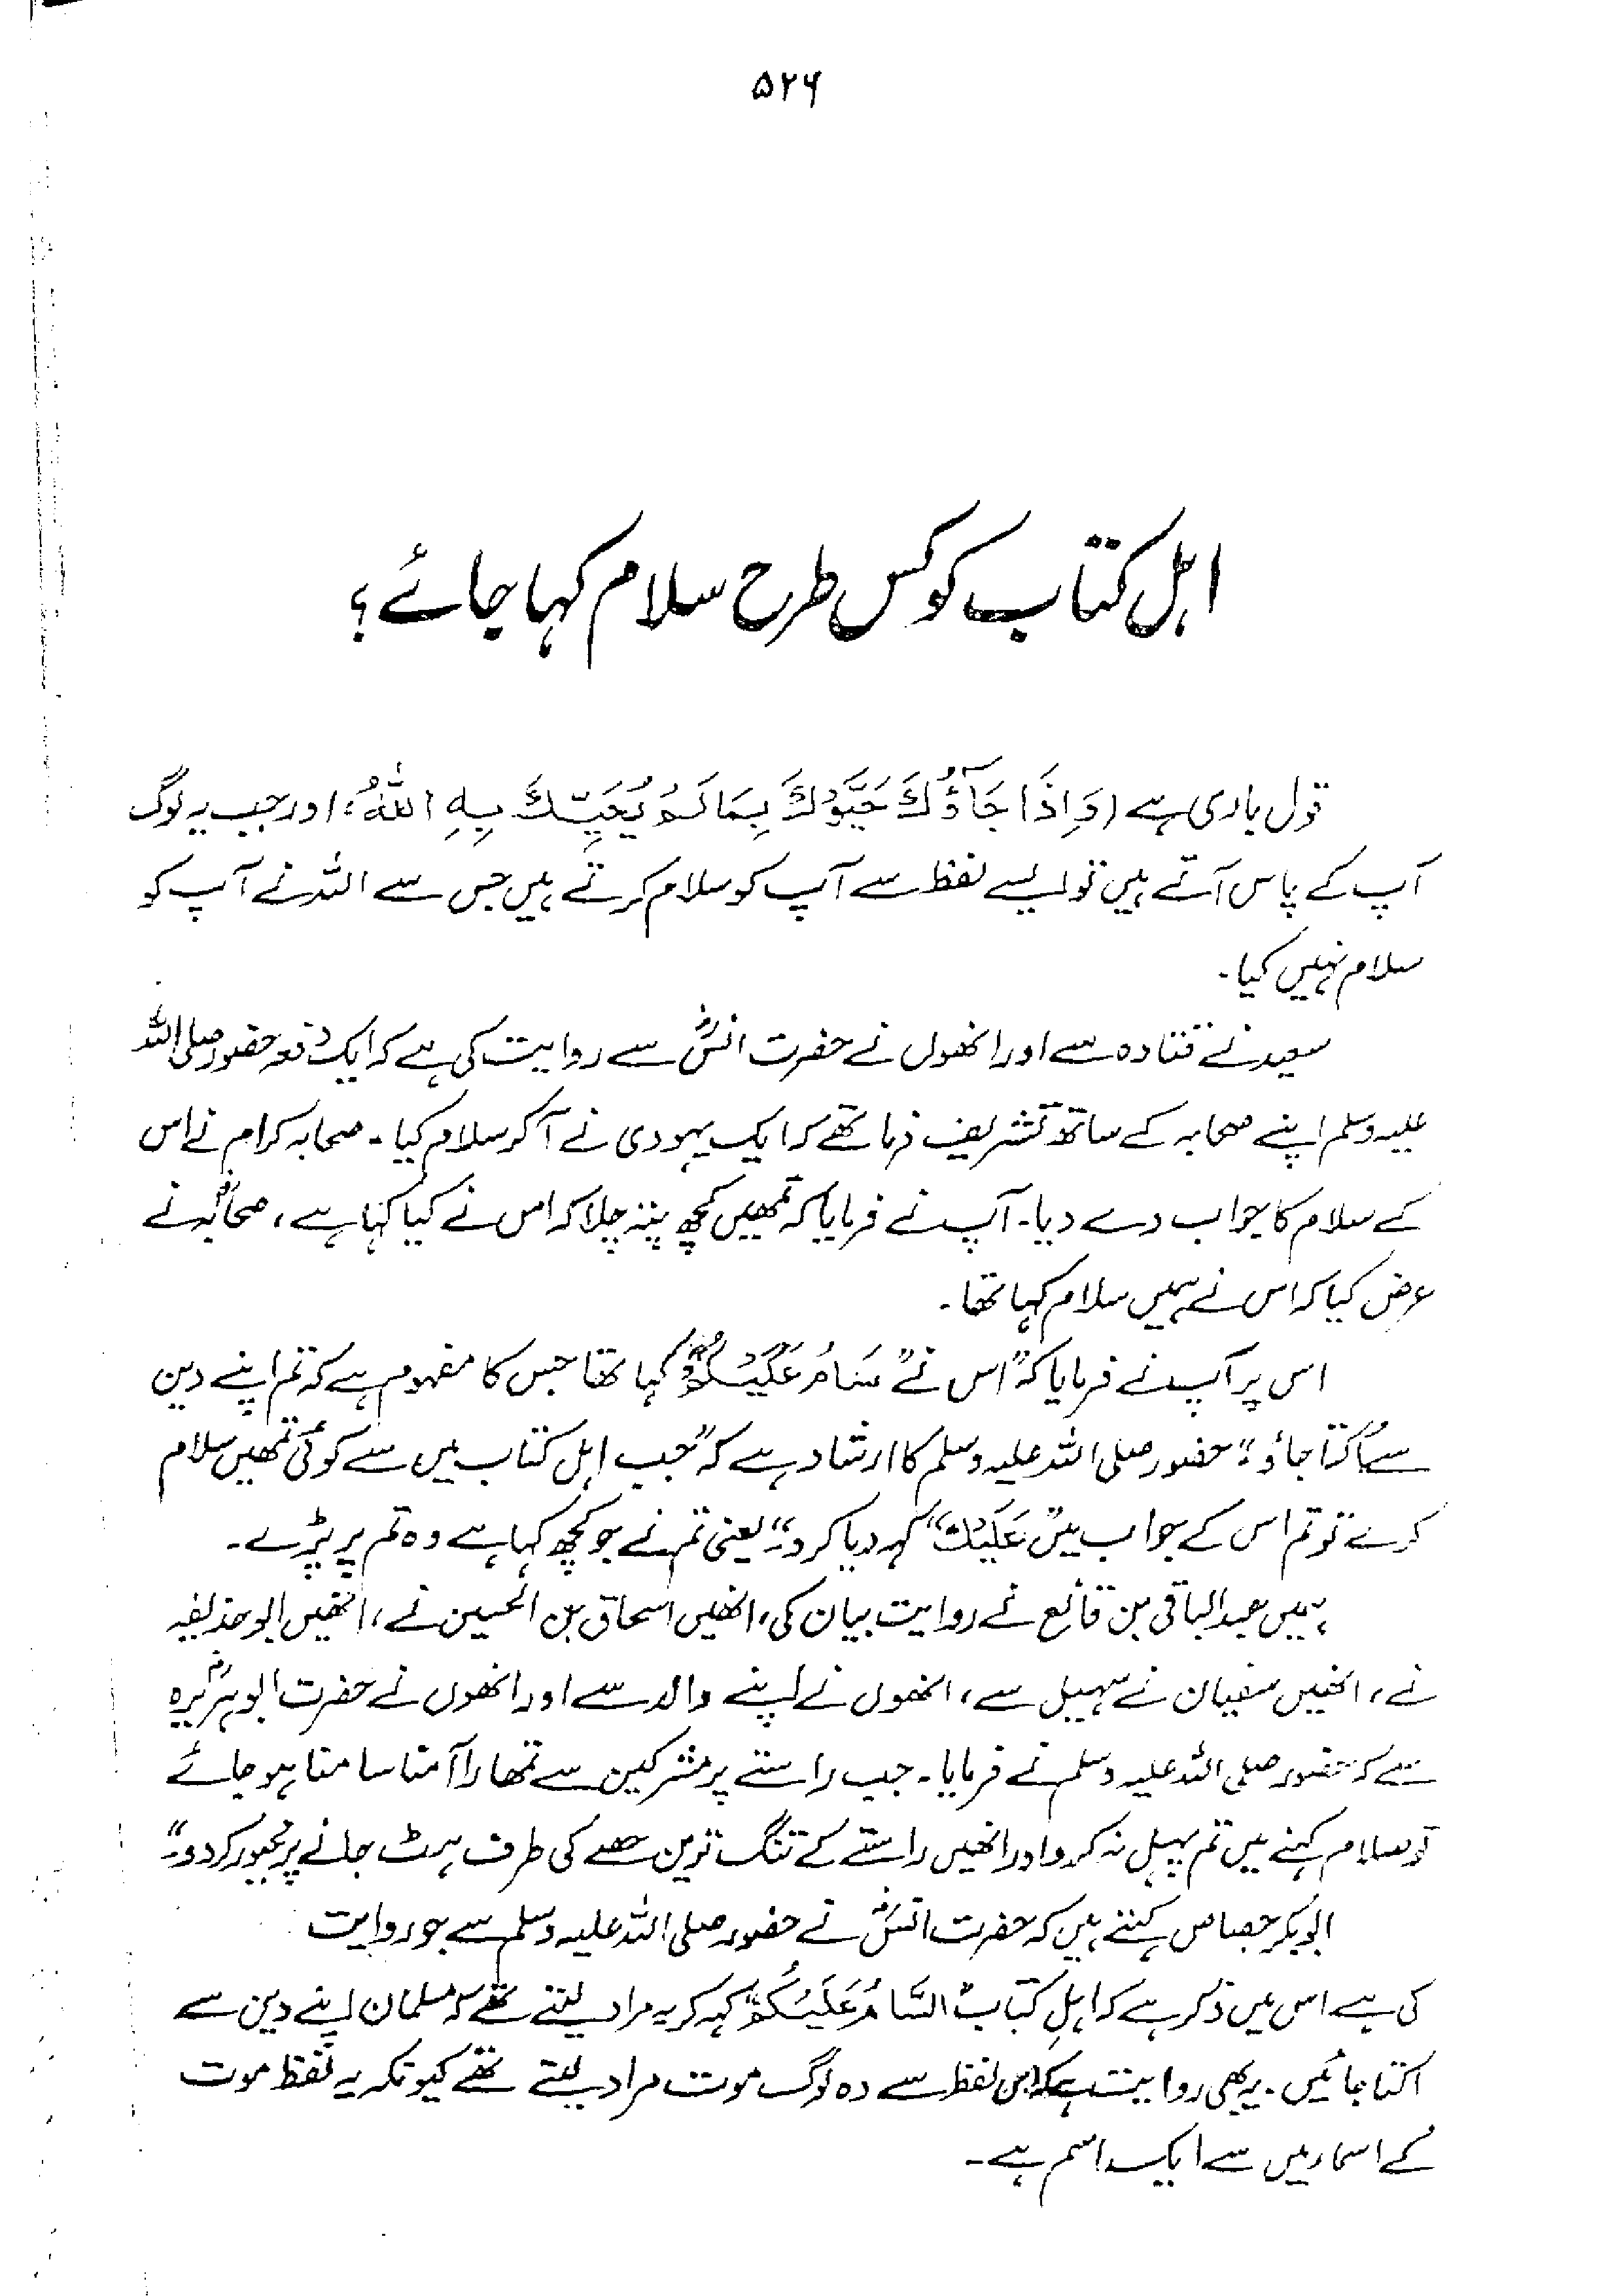 ۵۲۶
اہل کتاب کو کس طرح سلام کہا جائے؟
قول باری ہے (وَاِذَا جَآؤُكَ حَيَّوْكَ بِمَا لَمْ يُحَيِّكَ بِهِ اللّٰهُ، اور جب یہ لوگ
آپ کے پاس آتے ہیں تو ایسے لفظ سے آپ کو سلام کرتے ہیں جس سے اللہ نے آپ کو
سلام نہیں کیا۔
سعید نے قتادہ سے اور انھوں نے حضرت انسؓ سے روایت کی ہے کہ ایک دفعہ حضور صلی اللہ
علیہ وسلم اپنے صحابہ کے ساتھ تشریف فرما تھے کہ ایک یہودی نے آ کر سلام کیا۔ صحابہ کرام نے اس
کے سلام کا جواب دے دیا۔ آپ نے فرمایا کہ تمھیں کچھ پتہ چلا کہ اس نے کیا کہا ہے، صحابہؓ نے
عرض کیا کہ اس نے ہمیں سلام کہا تھا۔
اس پر آپ نے فرمایا کہ "اس نے "سَامُ عَلَيْكُمْ" کہا تھا جس کا مفہوم ہے کہ تم اپنے دین
سے اُکتا جاؤ"۔ حضور صلی اللہ علیہ وسلم کا ارشاد ہے کہ "جب اہل کتاب میں سے کوئی تمھیں سلام
کرے تو تم اس کے جواب میں "عَلَيْكَ" کہہ دیا کرو"۔ یعنی تم نے جو کچھ کہا ہے وہ تم پر پڑے۔
ہمیں عبدالباقی بن قانع نے روایت بیان کی، انھیں اسحاق بن الحسین نے، انھیں ابو حذیفہ
نے، انھیں سفیان نے سہیل سے، انھوں نے اپنے والد سے اور انھوں نے حضرت ابو ہریرہؓ
سے کہ حضور صلی اللہ علیہ وسلم نے فرمایا۔ جب راستے پر مشرکین سے تمھارا آمنا سامنا ہو جائے
تو سلام کہنے میں تم پہل نہ کرو اور انھیں راستے کے تنگ ترین حصے کی طرف ہٹ جانے پر مجبور کردو"۔
ابوبکر جصاص کہتے ہیں کہ حضرت انسؓ نے حضور صلی اللہ علیہ وسلم سے جو روایت
کی ہے اس میں ذکر ہے کہ اہلِ کتاب "السَّامُ عَلَيْكُمْ" کہہ کر یہ مراد لیتے تھے کہ مسلمان اپنے دین سے
اکتا جائیں۔ یہ بھی روایت ہے کہ اس لفظ سے وہ لوگ موت مراد لیتے تھے کیونکہ یہ لفظ موت
کے اسماء میں سے ایک اسم ہے۔